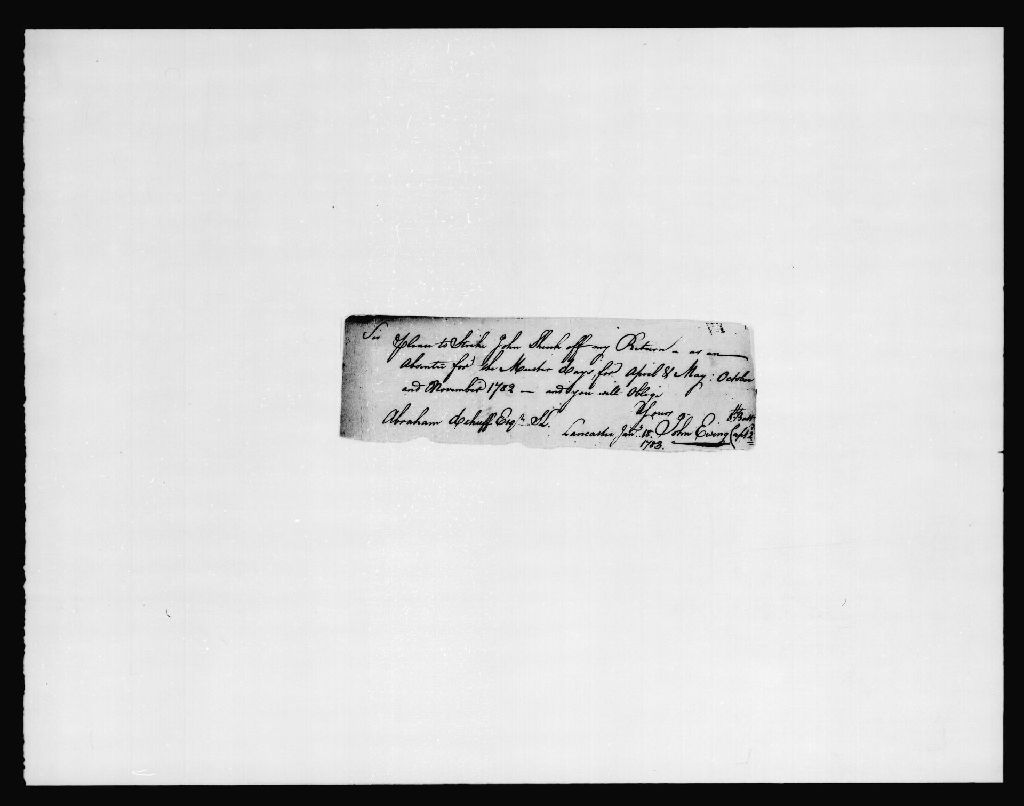 Sir
Please to Strike John Shenk off my Return - as an
Absentee for the Muster Days for April & May: October
and November 1782 — and you will Oblige
Yours
Abraham Dehuff Esqr. S.L.
Lancaster Jany. 18. John Ewing Capt.
1783.